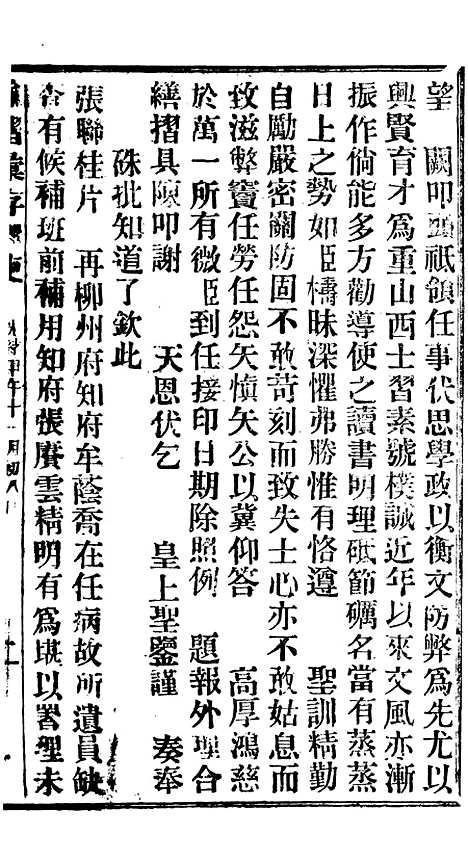 望　闕叩頭祇領任事伏思學政以衡文防弊爲先尤以
興賢育才爲重山西士習素號樸誠近年以來文風亦漸
振作倘能多方勸導使之讀書明理砥節礪名當有蒸蒸
日上之勢如臣檮昧深懼弗勝惟有恪遵　聖訓精勤
自勵嚴密關防固不敢苛刻而致失士心亦不敢姑息而
致滋弊竇任勞任怨矢愼矢公以冀仰答　高厚鴻慈
於萬一所有微臣到任接印日期除照例　題報外理合
繕摺具陳叩謝　天恩伏乞　皇上聖鑒謹　奏奉
硃批知道了欽此
張聯桂片　再柳州府知府牟蔭喬在任病故所遺員缺
查有候補班前補用知府張賡雲精明有爲堪以署理未
諭摺彙存